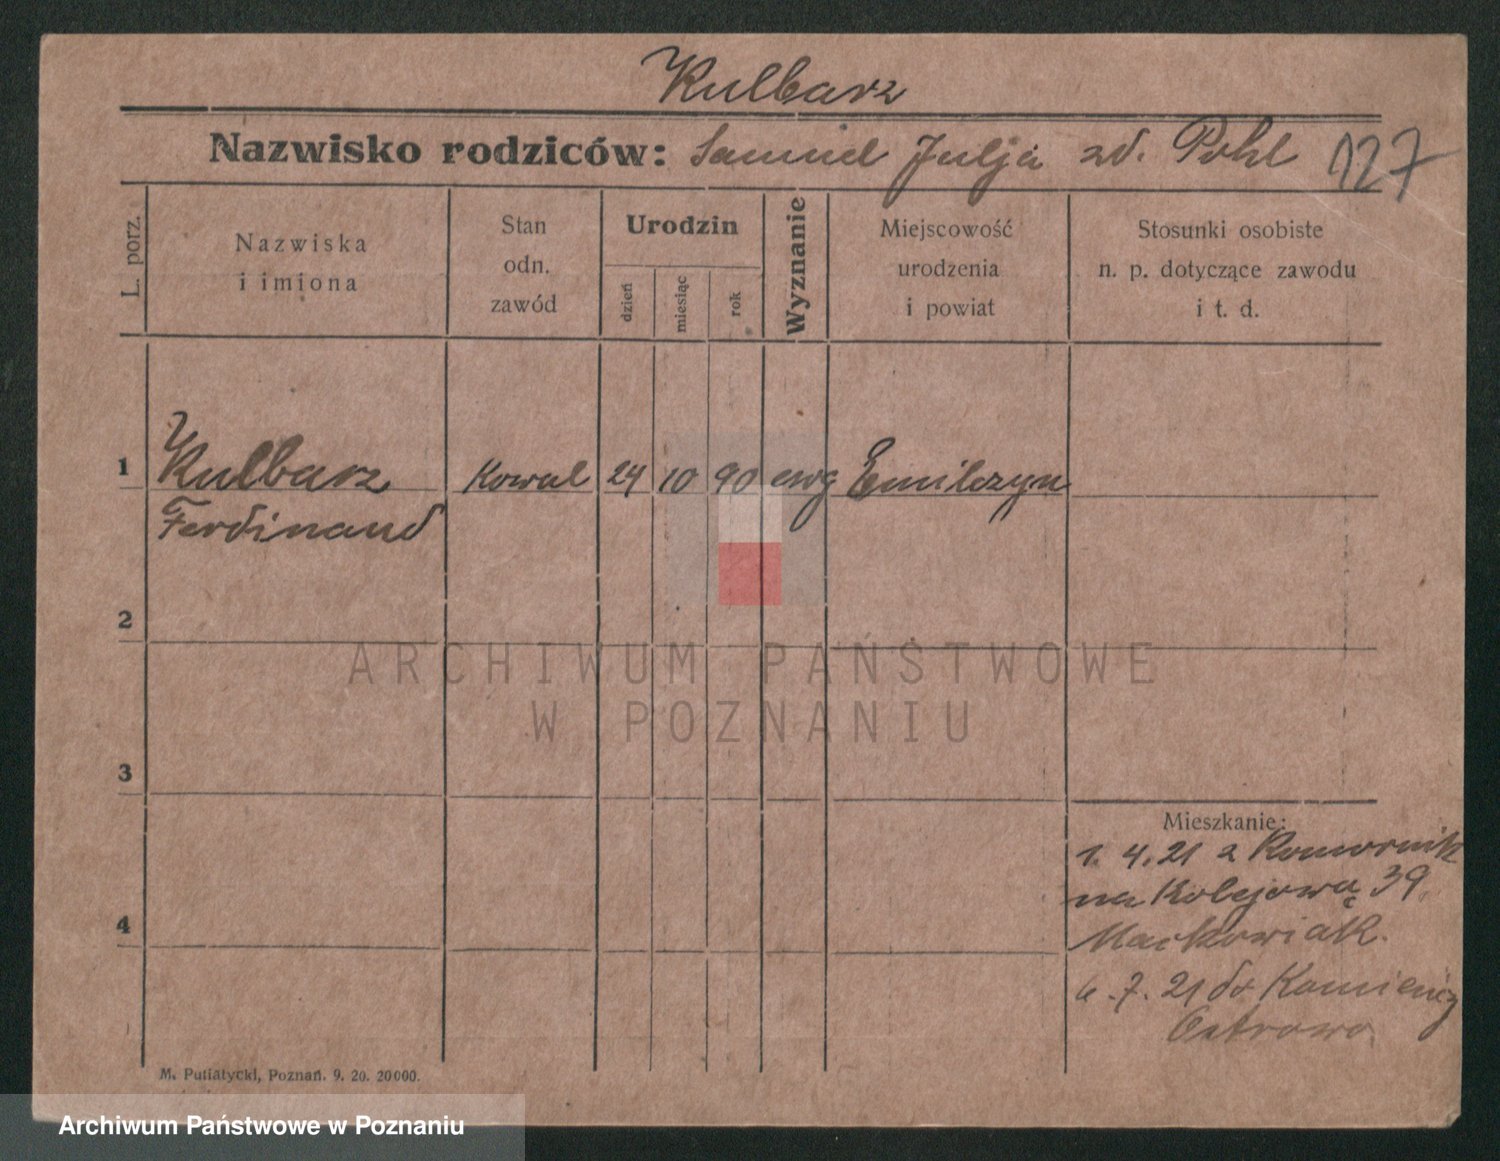 Kulbarz
Nazwisko rodziców: Samuel Julja zd. Pohl 127
L. porz.
Nazwiska
i imiona
Stan
odn.
zawód
Urodzin
dzień
miesiąc
rok
Wyznanie
Miejscowość
urodzenia
i powiat
Stosunki osobiste
n. p. dotyczące zawodu
i t. d.
1 Kulbarz Kowal 24 10 90 ewg Emilczyn
Ferdinand
2
3
4
ARCHIWUM PAŃSTWOWE
W POZNANIU
Mieszkanie:
1. 4. 21 z Komornik
na Kolejową 39
Maćkowiak.
6. 7. 21 do
Ostrowo
M. Putiatycki, Poznań. 9. 20. 20000.
Archiwum Państwowe w Poznaniu